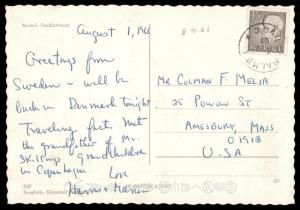 Malmö. Postkontoret.
August 1, 196
8-4.66
Greetings from
Sweden - will be
back in Denmark tonight
Traveling fast. Met
the grandfather of Mr.
grandchildren
in Copenhagen
Love
SVERIGE
MALMÖ
MR COLMAN F. MELIA
25 POWOW ST
AMESBURY, MASS
01913
U.S.A